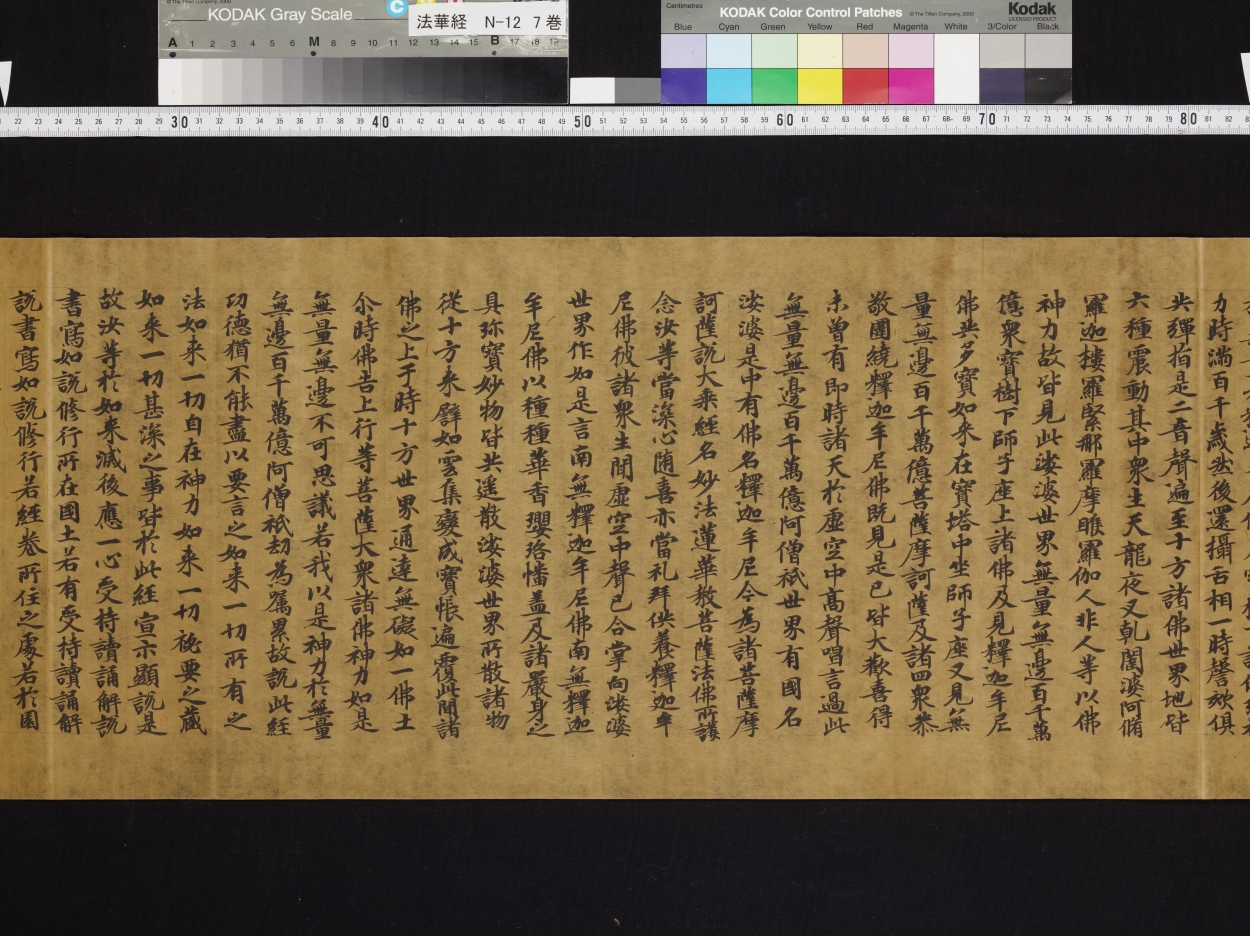 © The Tiffen Company, 2000
KODAK Gray Scale
C
法華経 N-12 7巻
A 1 2 3 4 5 6 M 8 9 10 11 12 13 14 15 B 17 18 19
Centimetres
KODAK Color Control Patches
© The Tiffen Company, 2000
Kodak
LICENSED PRODUCT
Blue Cyan Green Yellow Red Magenta White 3/Color Black
22 23 24 25 26 27 28 29 30 31 32 33 34 35 36 37 38 39 40 41 42 43 44 45 46 47 48 49 50 51 52 53 54 55 56 57 58 59 60 61 62 63 64 65 66 67 68 69 70 71 72 73 74 75 76 77 78 79 80 81 82
力時満百千歳然後還攝舌相一時謦欬俱
共彈指是二音聲遍至十方諸佛世界地皆
六種震動其中衆生天龍夜叉乹闥婆阿脩
羅迦樓羅緊那羅摩睺羅伽人非人等以佛
神力故皆見此娑婆世界無量無邊百千萬
億衆寶樹下師子座上諸佛及見釋迦牟尼
佛共多寶如来在寶塔中坐師子座又見無
量無邊百千萬億菩薩摩訶薩及諸四衆恭
敬圍繞釋迦牟尼佛既見是已皆大歡喜得
未曾有即時諸天於虚空中髙聲唱言過此
無量無邊百千萬億阿僧祇世界有國名
娑婆是中有佛名釋迦牟尼今為諸菩薩摩
訶薩說大乘經名妙法蓮華教菩薩法佛所護
念汝等當深心随喜亦當礼拜供養釋迦牟
尼佛彼諸衆生聞虚空中聲已合掌向娑婆
世界作如是言南無釋迦牟尼佛南無釋迦
牟尼佛以種種華香瓔珞幡盖及諸嚴身之
具珎寶妙物皆共遥散娑婆世界所散諸物
從十方来譬如雲集變成寶帳遍覆此間諸
佛之上于時十方世界通達無礙如一佛土
尒時佛告上行等菩薩大衆諸佛神力如是
無量無邊不可思議若我以是神力於無量
無邊百千萬億阿僧祇劫為囑累故說此經
功德猶不能盡以要言之如来一切所有之
法如来一切自在神力如来一切祕要之蔵
如来一切甚深之事皆於此經宣示顯說是
故汝等於如来滅後應一心受持讀誦解說
書寫如說修行所在國土若有受持讀誦解
說書寫如說修行若經卷所住之處若於園